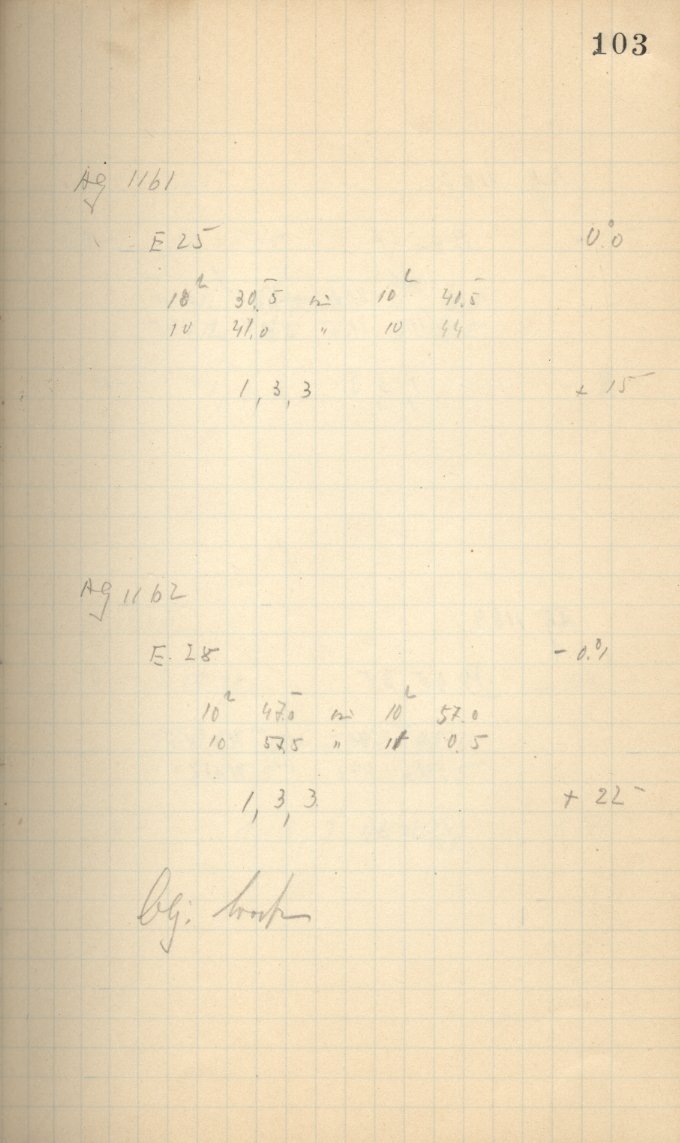 103
Ag 1161
E 25 0.°0
10 30.5 10 40.5
10 41.0 " 10 44
1, 3, 3 + 15
Ag 1162
E. 28 - 0.°1
10 47.0 10 57.0
10 57.5 " 11 0.5
1, 3, 3 + 22
Obj.